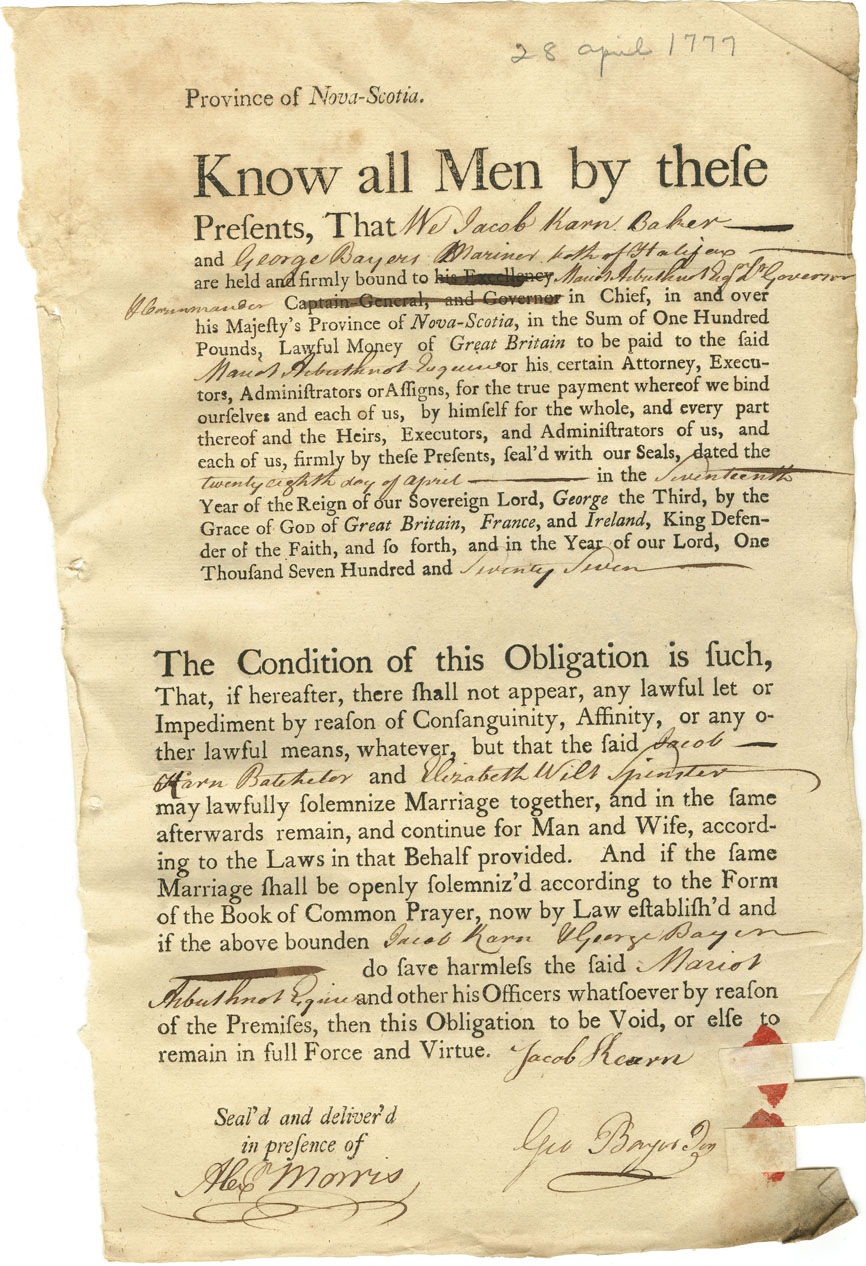 28 april 1777
Province of Nova-Scotia.
Know all Men by theſe
Preſents, That We Jacob Karn Baker
and George Bayers Mariner both of Halifax
are held and firmly bound to his Excellency Mariot Arbuthnot Esqr. Lt. Governor
& Commander Captain-General, and Governor in Chief, in and over
his Majeſty's Province of Nova-Scotia, in the Sum of One Hundred
Pounds, Lawful Money of Great Britain to be paid to the said
Mariot Arbuthnot Esquire or his certain Attorney, Execu-
tors, Adminiſtrators or Aſſigns, for the true payment whereof we bind
ourſelves and each of us, by himſelf for the whole, and every part
thereof and the Heirs, Executors, and Adminiſtrators of us, and
each of us, firmly by theſe Preſents, ſeal'd with our Seals, dated the
twenty eighth day of april in the Seventeenth
Year of the Reign of our Sovereign Lord, George the Third, by the
Grace of God of Great Britain, France, and Ireland, King Defen-
der of the Faith, and ſo forth, and in the Year of our Lord, One
Thouſand Seven Hundred and Seventy Seven
The Condition of this Obligation is ſuch,
That, if hereafter, there ſhall not appear, any lawful let or
Impediment by reaſon of Conſanguinity, Affinity, or any o-
ther lawful means, whatever, but that the ſaid Jacob
Karn Batchelor and Elizabeth Wilt Spinster
may lawfully ſolemnize Marriage together, and in the ſame
afterwards remain, and continue for Man and Wife, accord-
ing to the Laws in that Behalf provided. And if the ſame
Marriage ſhall be openly ſolemniz'd according to the Form
of the Book of Common Prayer, now by Law eſtabliſh'd and
if the above bounden Jacob Karn & George Bayers
do ſave harmleſs the ſaid Mariot
Arbuthnot Esquire and other his Officers whatſoever by reaſon
of the Premiſes, then this Obligation to be Void, or elſe to
remain in full Force and Virtue. Jacob Kearn
Seal'd and deliver'd
in preſence of
Geo Bayer Jun
Alexr. Morris